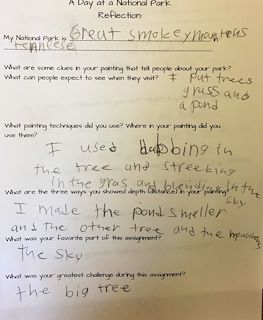 A Day at a National Park
Reflection
My National Park is Great smokey mountous
tenneese
What are some clues in your painting that tell people about your park?
What can people expect to see when they visit? I Put trees
grass and
a pond
What painting techniques did you use? Where in your painting did you
use them?
I used dabbing in
the tree and streeking
in the gras and blending in the
sky
What are the three ways you showed depth (distance) in your painting?
I made the pond smeller
and the other tree and the mountins
What was your favorite part of this assignment?
the sky
What was your greatest challenge during this assignment?
the big tree